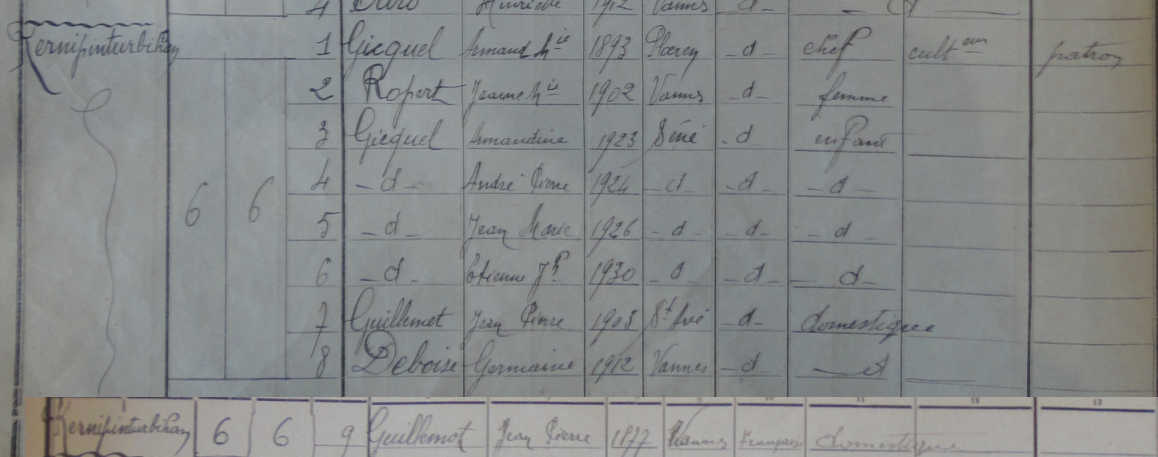 4 1912 Vannes d
Kernipinturbihan 1 Gicquel Armand Mie 1893 Ploeren d chef culteur patron
2 Ropert Jeanne Mie 1902 Vannes d femme
3 Gicquel Armandine 1923 Séné d enfant
6 6 4 d André Pierre 1924 d d d
5 d Jean Marie 1926 d d d
6 d Etienne Jh 1930 d d d
7 Guillemot Jean Pierre 1908 St Avé d domestique
8 Deboise Germaine 1912 Vannes d d
11 12 13
Kernipinturbihan 6 6 9 Guillemot Jean Pierre 1877 Française domestique